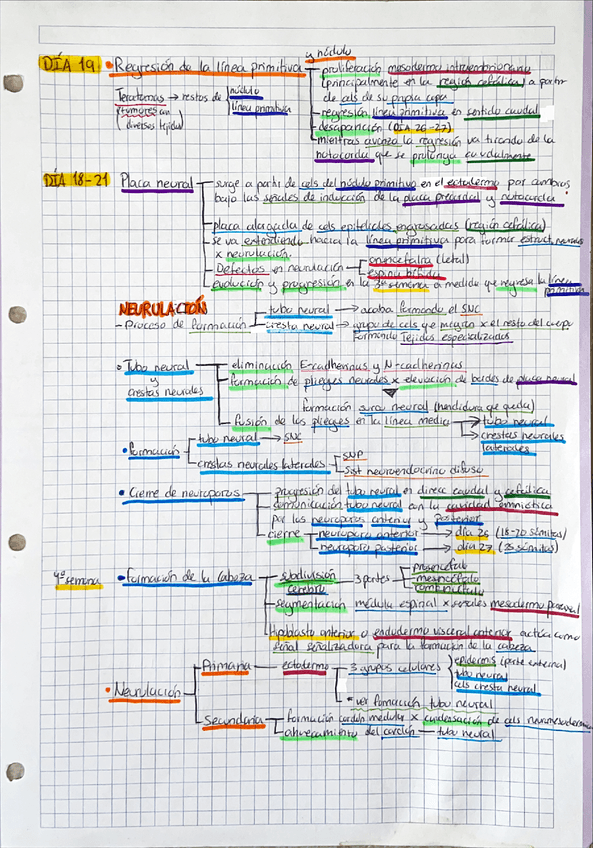 y nódulo
DÍA 19 • Regresión de la línea primitiva
proliferación mesodermo intraembrionario
(principalmente en la región cefálica) a partir
de cels de su propia capa
Teratomas → restos de nódulo
línea primitiva
(tumores con
diversos tejidos)
regresión línea primitiva en sentido caudal
desaparición (DÍA 26-27)
mientras avanza la regresión va tirando de la
notocorda que se prolonga caudalmente
DÍA 18-21 Placa neural
surge a partir de cels del nódulo primitivo en el ectodermo por cambios
bajo las señales de inducción de la placa precordal y notocorda
placa alargada de cels epiteliales engrosadas (región cefálica)
se va extendiendo hacia la línea primitiva para formar estruct. neurales
x neurulación.
Defectos en neurulación anencefalia (letal)
espina bífida
evolución y progresión en la 3ª semana a medida que regresa la línea
primitiva
NEURULACIÓN
- Proceso de formación
tubo neural → acaba formando el SNC
cresta neural → grupo de cels que migran x el resto del cuerpo
formando tejidos especializados
• Tubo neural
y
crestas neurales
eliminación E-cadherinas y N-cadherinas
formación de pliegues neurales x elevación de bordes de placa neural
formación surco neural (hendidura que queda)
fusión de los pliegues en la línea media → tubo neural
→ crestas neurales
laterales
• Formación
tubo neural → SNC
crestas neurales laterales SNP
Sist neuroendocrino difuso
• Cierre de neuroporos
progresión del tubo neural en direcc caudal y cefálica
comunicación tubo neural con la cavidad amniótica
por los neuroporos anterior y posterior
cierre neuroporo anterior → día 25 (18-20 sómitas)
neuroporo posterior → día 27 (25 sómitas)
4ª semana • Formación de la cabeza
subdivisión
cerebro
3 partes
prosencéfalo
mesencéfalo
rombencéfalo
segmentación médula espinal x señales mesodermo paraxial
hipoblasto anterior o endodermo visceral anterior actúa como
señal señalizadora para la formación de la cabeza
• Neurulación
Primaria — ectodermo
3 grupos celulares
epidermis (parte externa)
tubo neural
cels cresta neural
* ver formación tubo neural
Secundaria
formación cordón medular x condensación de cels neuromesodérmicas
ahuecamiento del cordón — tubo neural